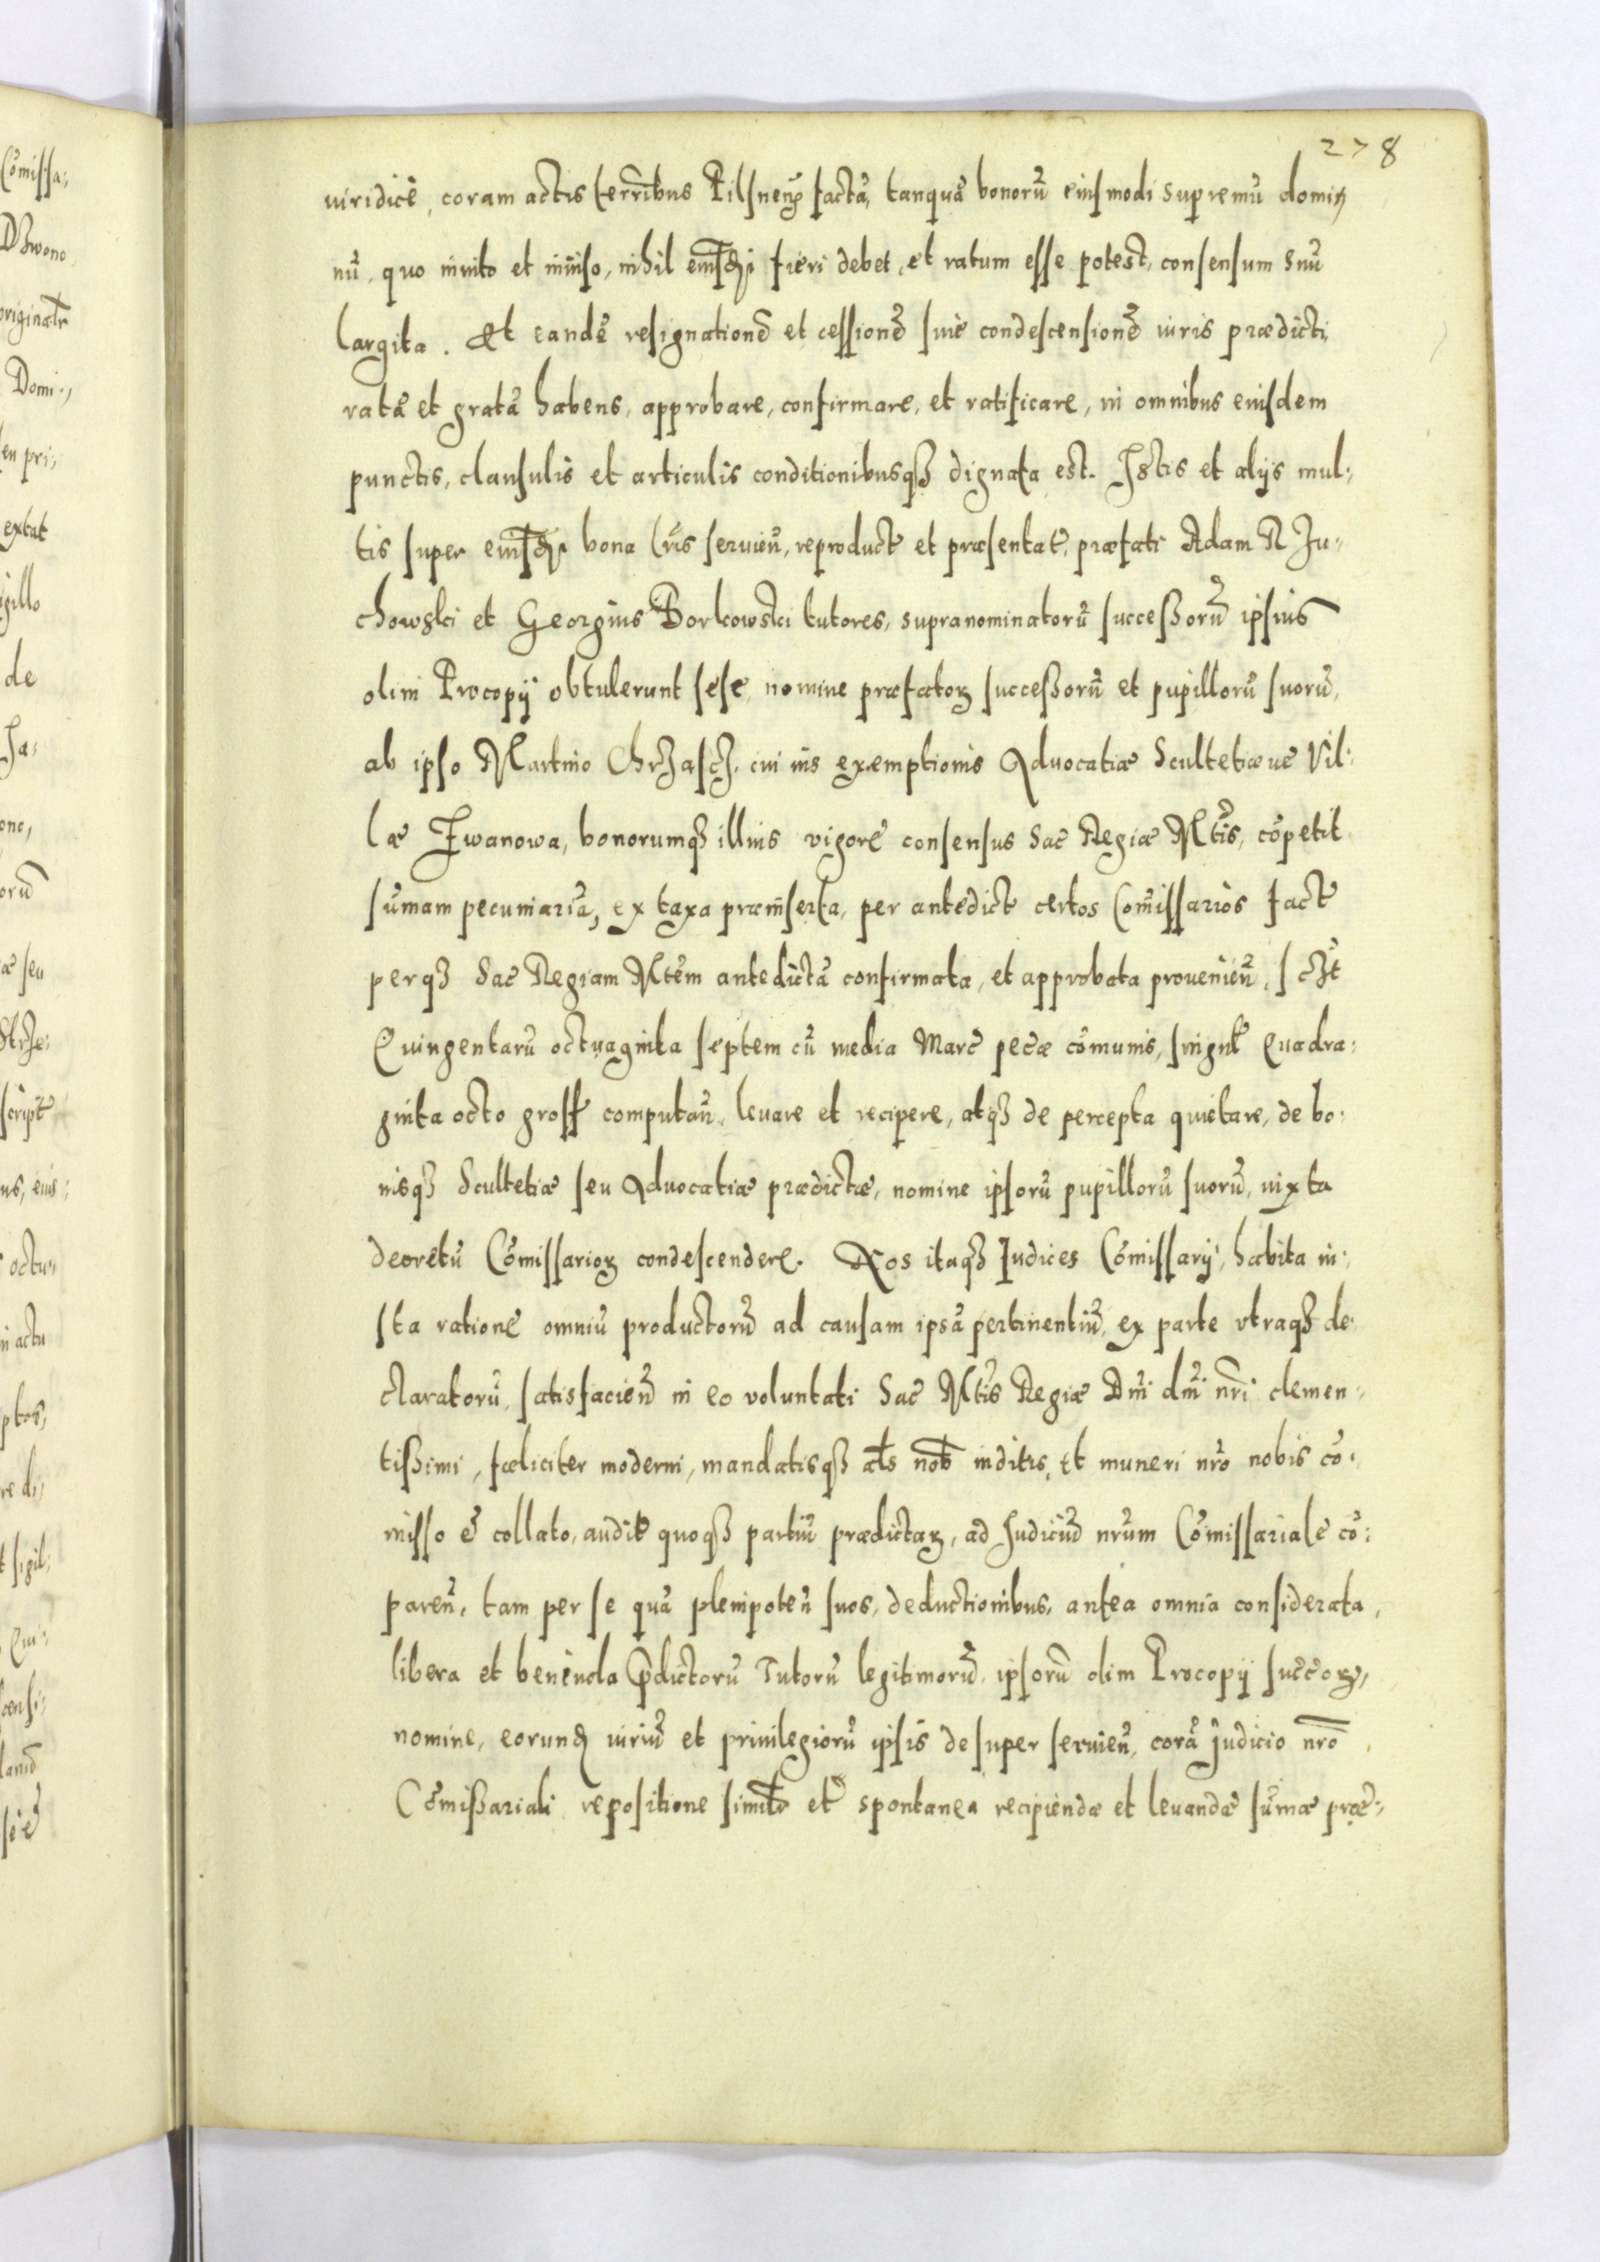 278
iuridicē, coram actis terrībus Pilsneñ factā, tanquā bonorū eiusmodi supremū domi⸗
nū, quo inuito et inuiso, nihil eiusdi fieri debet, et ratum esse potest, consensum suū
largita. Et eandē resignationē et cessionē siuè condescensionē iuris prædicti,
ratā et gratā habens, approbare, confirmare, et ratificare, in omnibus eiusdem
punctis, clausulis et articulis conditionibusqȝ dignata est. Istis et alijs mul⸗
tis super bona l̃ris seruieñ, reproduct̃ et præsentat̃, præfati Adam R Ju⸗
chowski et Georgius Borkowski tutores, supranominatorū successorū ipsius
olim Procopij obtulerunt sese, nomine præfatoꝝ successorū et pupillorū suorū,
ab ipso Martino Chrząscz, cui ius exemptionis Aduocatiæ Scultetiæ ue Vil⸗
læ Iwanowa, bonorumqȝ illius vigore consensus Sac̃ Regiæ Mt̃is, cōpetit
sūmam pecuniariā, ex taxa præinserta, per antedict̃ certos Com̃issarios fact̃
perqȝ Sac̃ Regiam Mt̃em antedictā confirmata, et approbata prouenieñ, sczt̃
Quingentarū octuaginta septem cū media Marc̃ pec̃æ cōmunis, singul̃ Quadra⸗
ginta octo gross̃ computañ, leuare et recipere, atqȝ de percepta quietare, de bo⸗
nisqȝ Scultetiæ seu Aduocatiæ prædictæ, nomine ipsorū pupillorū suorū, iuxta
decretū Cōmissarioꝝ condescendere. Nos itaqȝ Iudices Cōmissarij, habita iu⸗
sta ratione omniū productorū ad causam ipsā pertinentiū, ex parte vtraqȝ de⸗
claratorū, satisfacieñ in eo voluntati Sac̃ Mt̃is Regiæ Dñi dñi nr̃i clemen⸗
tissimi, fæliciter moderni, mandatisqȝ al̃s nob̃ inditis, Et muneri nr̃o nobis cō⸗
misso & collato, audit̃ quoqȝ partiū prædictaꝝ, ad Iudiciū nr̃um Cōmissariale cō⸗
pareñ, tam per se quā plenipoteñ suos, deductionibus, antea omnia considerata,
libera et beneuola p̃dictorū Tutorū legitimorū, ipsorū olim Procopij succ̃oꝝ,
nomine, eorund̃ iuriū et priuilegiorū ipsis desuper seruieñ, corā iudicio nr̃o
Cōmissariali repositione simil̃r et spontanea recipiendæ et leuandæ sūmæ præ⸗